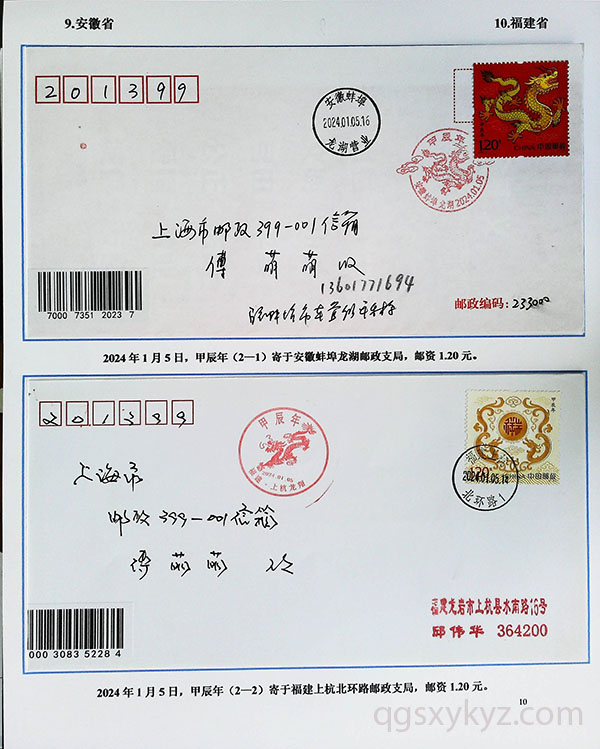 9.安徽省
10.福建省
201399
安徽蚌埠
2024.01.05.16
龙湖营业
甲辰年
安徽蚌埠龙湖2024.01.05
1.20元
CHINA 中国邮政
上海市邮政399-001信箱
傅萌萌收
13601771694
7000 7351 2023 7
邮政编码:233000
2024年1月5日,甲辰年(2—1)寄于安徽蚌埠龙湖邮政支局,邮资1.20元。
201399
甲辰年
2024.01.05
福建·上杭龙翔
甲辰年
CHINA 中国邮政
2024.01.05.16
北环路1
上海市
邮政399-001信箱
傅萌萌收
000 3083 5228 4
福建龙岩市上杭县水南路16号
邱伟华 364200
2024年1月5日,甲辰年(2—2)寄于福建上杭北环路邮政支局,邮资1.20元。
10
qgsxykyz.com